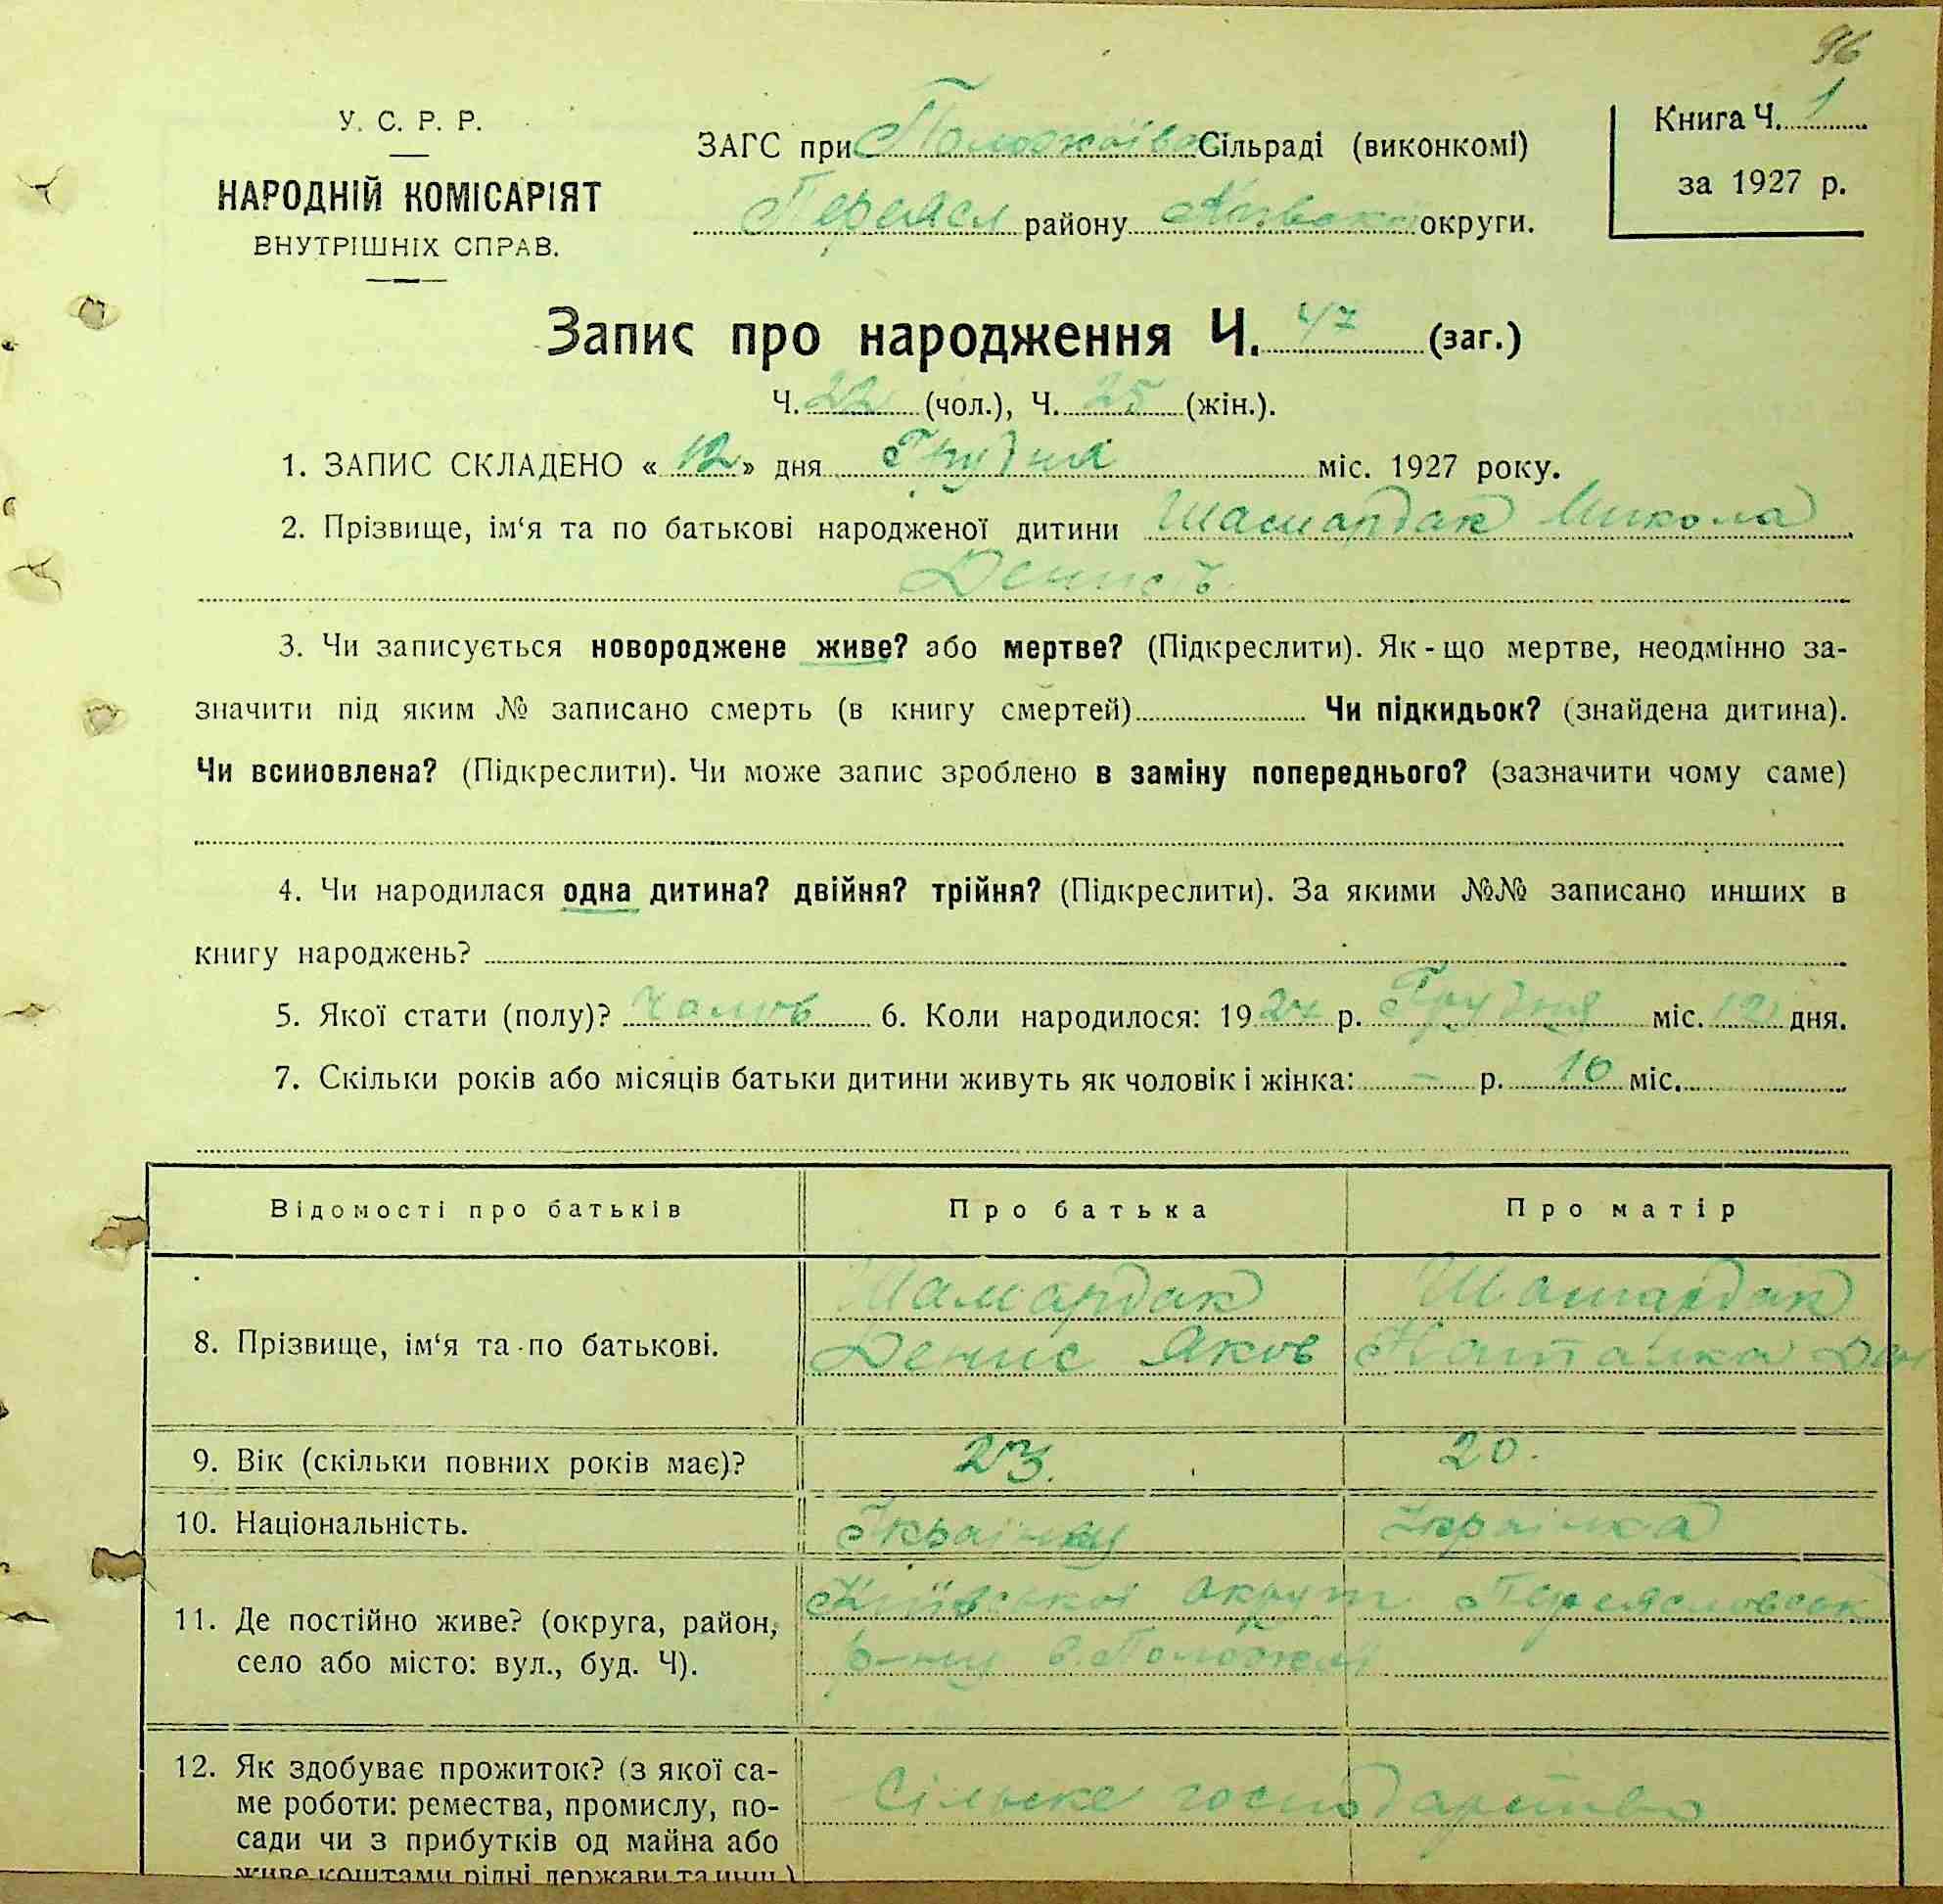 96
У. С. Р. Р.
НАРОДНІЙ КОМІСАРІЯТ
ВНУТРІШНІХ СПРАВ.
ЗАГС при Положаїв Сільраді (виконкомі)
Переясл району округи.
Книга Ч. 1
за 1927 р.
Запис про народження Ч. 47 (заг.)
Ч. 22 (чол.), Ч. 25 (жін.).
1. ЗАПИС СКЛАДЕНО « 12 » дня Грудня міс. 1927 року.
2. Прізвище, ім‘я та по батькові народженої дитини Шамардак Микола
Денис
3. Чи записується новороджене живе? або мертве? (Підкреслити). Як-що мертве, неодмінно за-
значити під яким № записано смерть (в книгу смертей) Чи підкидьок? (знайдена дитина).
Чи всиновлена? (Підкреслити). Чи може запис зроблено в заміну попереднього? (зазначити чому саме)
4. Чи народилася одна дитина? двійня? трійня? (Підкреслити). За якими №№ записано инших в
книгу народжень?
5. Якої стати (полу)? Чолов 6. Коли народилося: 1927 р. Грудня міс. 12 дня.
7. Скільки років або місяців батьки дитини живуть як чоловік і жінка: – р. 10 міс.
Відомості про батьків Про батька Про матір
Шамардак Шамардак
8. Прізвище, ім‘я та по батькові. Денис Яков Наталка
9. Вік (скільки повних років має)? 23. 20.
10. Національність. Українка
Київської округи Переясловськ
11. Де постійно живе? (округа, район,
село або місто: вул., буд. Ч). р-ну с. Положаї
12. Як здобуває прожиток? (з якої са-
ме роботи: ремества, промислу, по- Сільске господарство
сади чи з прибутків од майна або
живе коштами рідні держави та инш.)